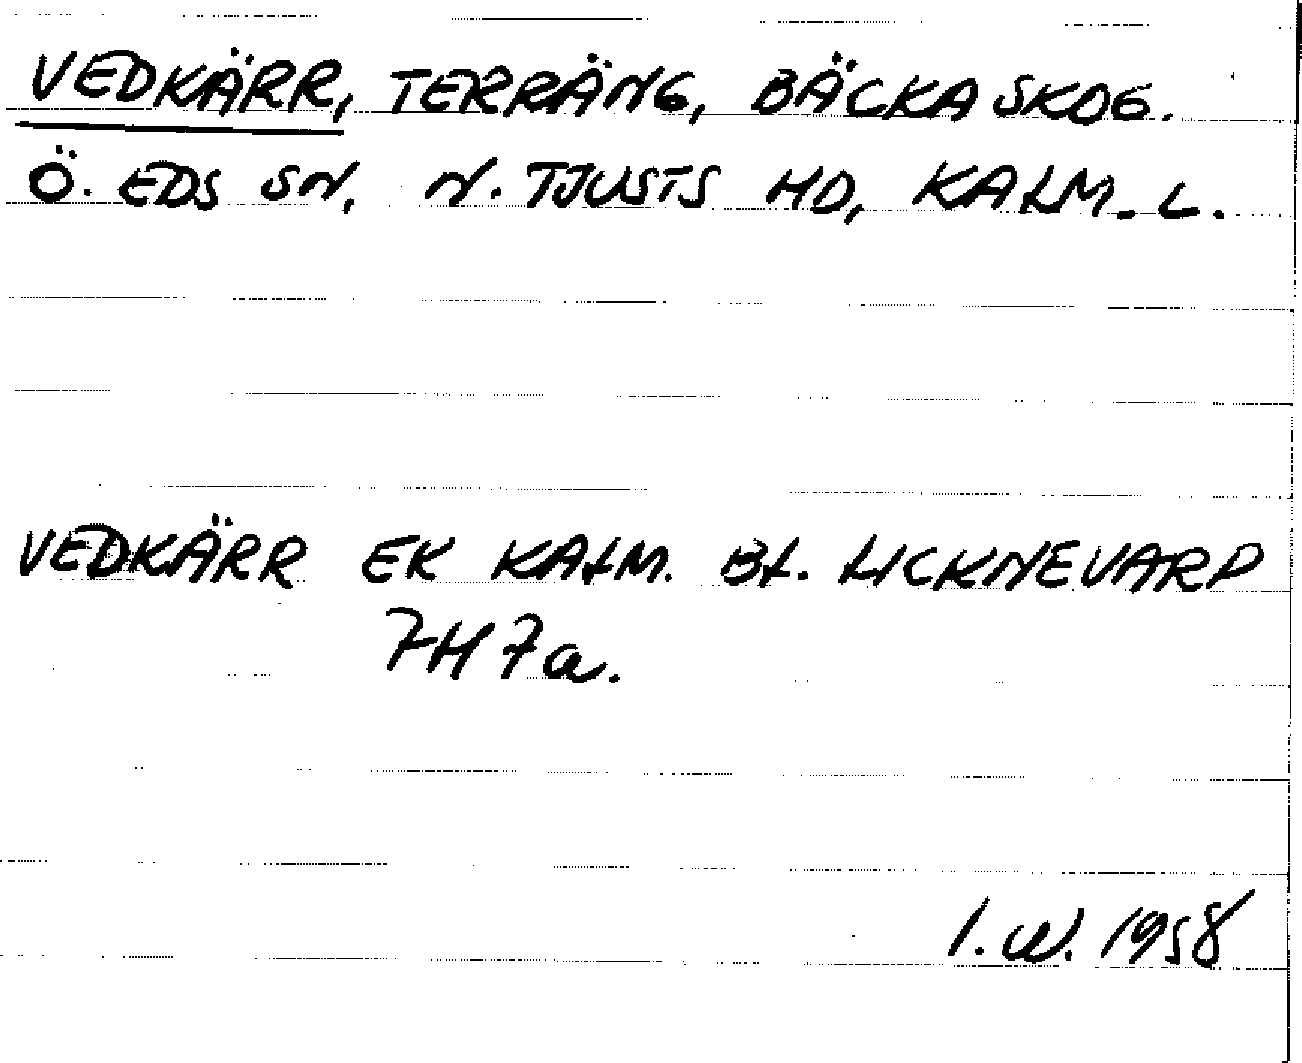 VEDKÄRR, TERRÄNG, BÄCKASKOG.
Ö. EDS SN, N. TJUSTS HD, KALM. L.
VEDKÄRR EK KALM. BL. LICKNEVARP
7H 7a.
I.W. 1958